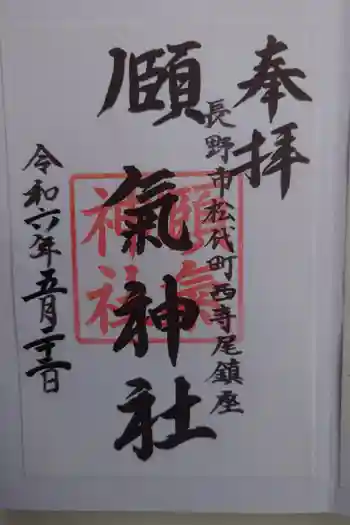 奉拝
長野市松代町西寺尾鎮座
頤氣神社
頤氣
神社
令和六年五月 日